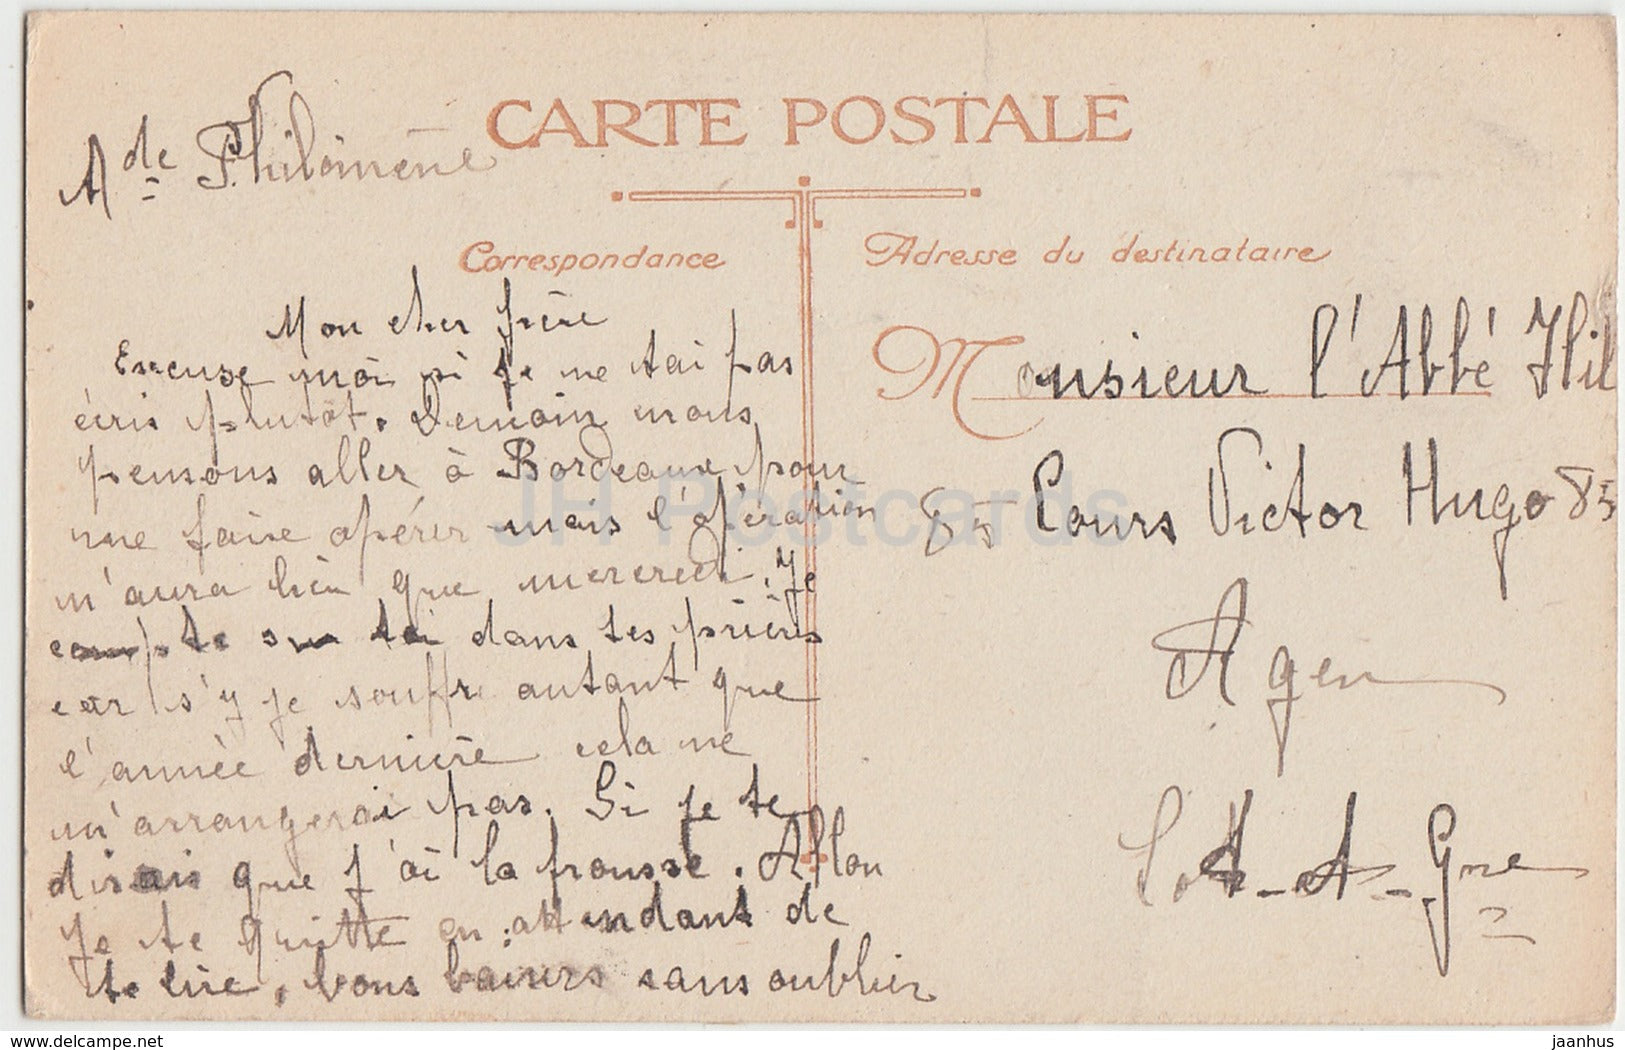 CARTE POSTALE
Mde Philomène
Correspondance
Adresse du destinataire
Mon cher frère
Excuse moi si je ne tai pas
écris plutôt. Demain nous
pensons aller à Bordeaux pour
me faire opérer mais l'opération
n'aura lieu que mercredi. Je
compte sur toi dans tes prières
car s'y je souffre autant que
l'année dernière cela ne
m'arrangerai pas. Si je te
disais que j'ai la frousse. Allon
je te quitte en attendant de
te lire, bons baisers sans oublier
Monsieur l'Abbé Hil
85 Cours Victor Hugo 85
Agen
Lot-A-Gne
JH Postcards
www.delcampe.net
jaanhus